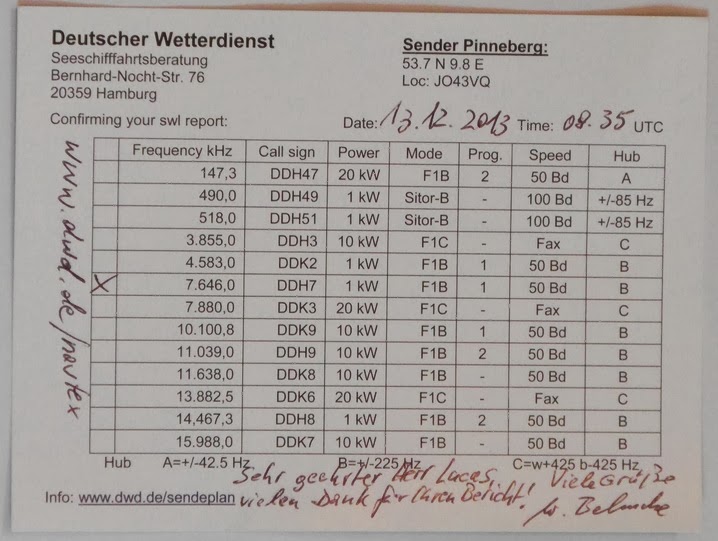 Deutscher Wetterdienst
Seeschifffahrtsberatung
Bernhard-Nocht-Str. 76
20359 Hamburg
Sender Pinneberg:
53.7 N 9.8 E
Loc: JO43VQ
Confirming your swl report:
Date: 13.12.2013 Time: 08.35 UTC
www.dwd.de/navtex
Frequency kHz Call sign Power Mode Prog. Speed Hub
147,3 DDH47 20 kW F1B 2 50 Bd A
490,0 DDH49 1 kW Sitor-B - 100 Bd +/-85 Hz
518,0 DDH51 1 kW Sitor-B - 100 Bd +/-85 Hz
3.855,0 DDH3 10 kW F1C - Fax C
4.583,0 DDK2 1 kW F1B 1 50 Bd B
X 7.646,0 DDH7 1 kW F1B 1 50 Bd B
7.880,0 DDK3 20 kW F1C - Fax C
10.100,8 DDK9 10 kW F1B 1 50 Bd B
11.039,0 DDH9 10 kW F1B 2 50 Bd B
11.638,0 DDK8 10 kW F1B - 50 Bd B
13.882,5 DDK6 20 kW F1C - Fax C
14,467,3 DDH8 1 kW F1B 2 50 Bd B
15.988,0 DDK7 10 kW F1B - 50 Bd B
Hub A=+/-42.5 Hz B=+/-225 Hz C=w+425 b-425 Hz
Sehr geehrter Herr Lucas,
vielen Dank für Ihren Bericht!
Viele Grüße
Info: www.dwd.de/sendeplan